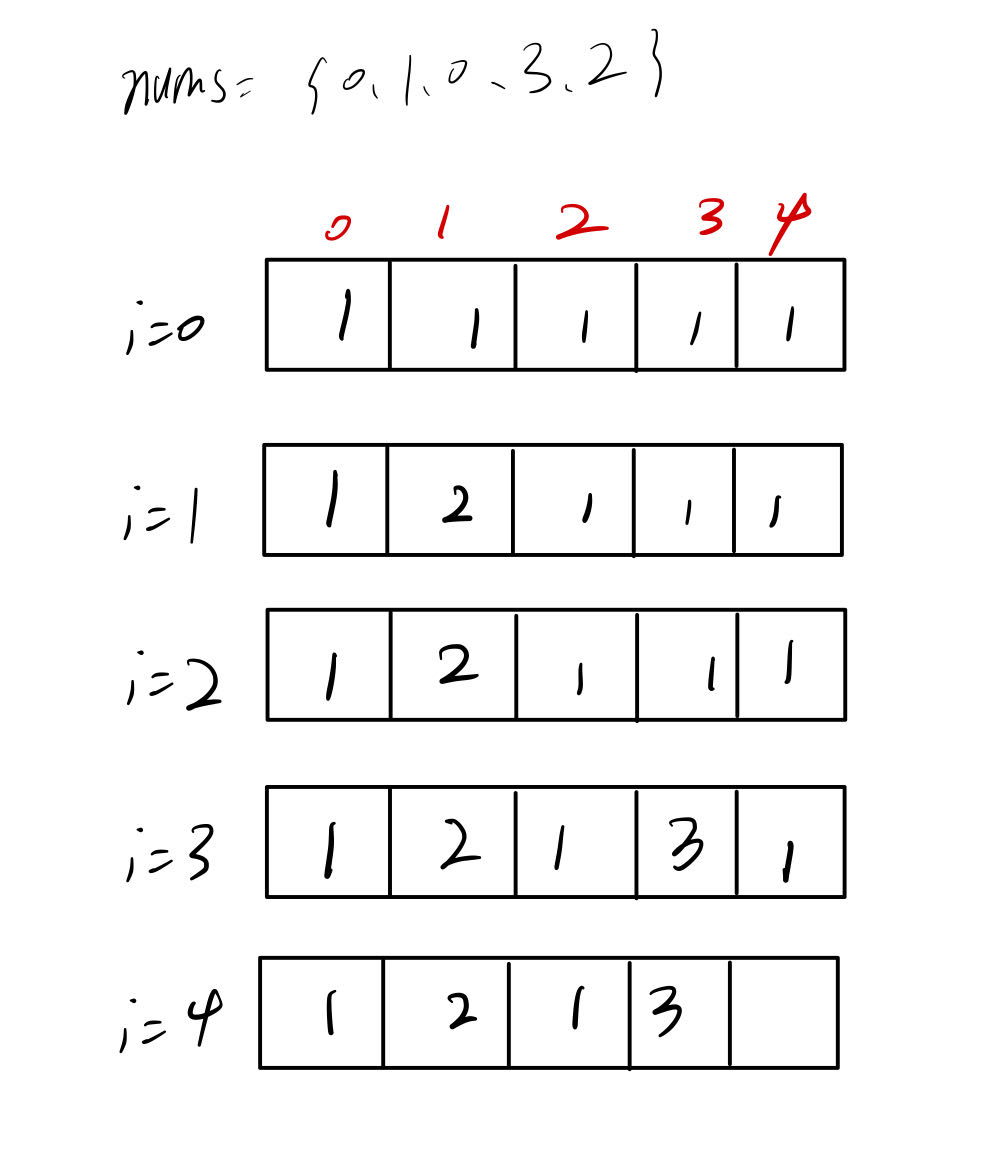 nums= {0,1,0,3,2}
0 1 2 3 4
i=0 1 1 1 1 1
i=1 1 2 1 1 1
i=2 1 2 1 1 1
i=3 1 2 1 3 1
i=4 1 2 1 3